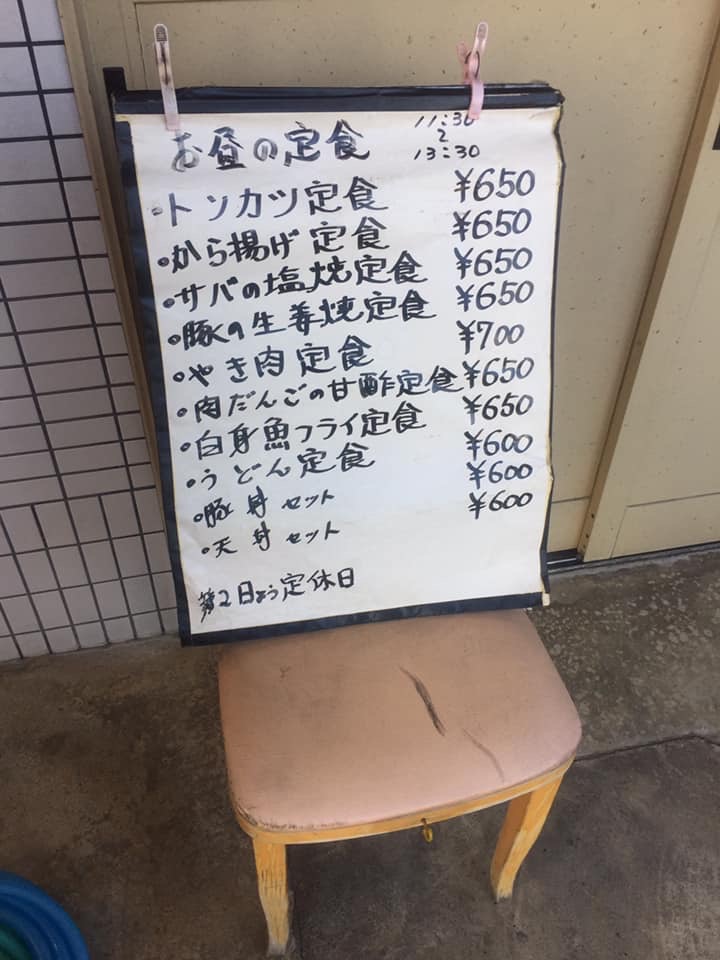 お昼の定食 11:30
～
13:30
・トンカツ定食 ¥650
・から揚げ定食 ¥650
・サバの塩焼定食 ¥650
・豚の生姜焼定食 ¥650
・やき肉定食 ¥700
・肉だんごの甘酢定食 ¥650
・白身魚フライ定食 ¥650
・うどん定食 ¥600
・豚丼セット ¥600
・天丼セット ¥600
第2日よう定休日